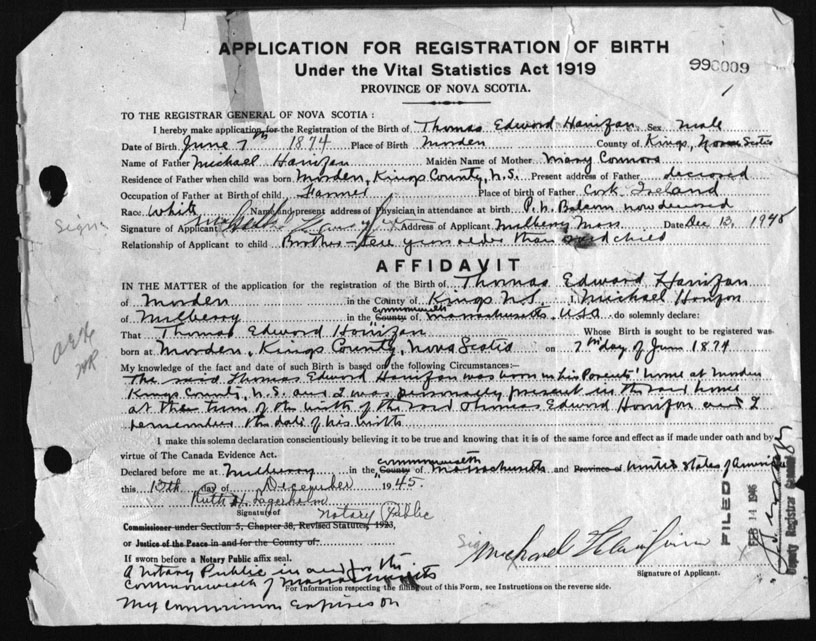 APPLICATION FOR REGISTRATION OF BIRTH
Under the Vital Statistics Act 1919
PROVINCE OF NOVA SCOTIA.
990009
TO THE REGISTRAR GENERAL OF NOVA SCOTIA:
I hereby make application for the Registration of the Birth of Thomas Edward Hanifan Sex male
Date of Birth June 7th 1874 Place of Birth Morden County of Kings, Nova Scotia
Name of Father Michael Hanifan Maiden Name of Mother Mary Connors
Residence of Father when child was born Morden, Kings County, N.S. Present address of Father deceased
Occupation of Father at Birth of child Farmer Place of birth of Father Cork Ireland
Race White Name and present address of Physician in attendance at birth P. N. Balcom now deceased
Signature of Applicant Address of Applicant Mulberry Mass Date Dec 13, 1945
Relationship of Applicant to child Brother - years older than said child
AFFIDAVIT
IN THE MATTER of the application for the registration of the Birth of Thomas Edward Hanifan
of Morden in the County of Kings N.S. I, Michael Hanifan
of Mulberry in the County Commonwealth of Massachusetts, USA do solemnly declare:
That Thomas Edward Hanifan Whose Birth is sought to be registered was
born at Morden, Kings County, Nova Scotia on 7th day of June 1874
My knowledge of the fact and date of such Birth is based on the following Circumstances:—
The said Thomas Edward Hanifan was born in his Parents' home at Morden
Kings County, N.S. and I was personally present in the said home
at the time of the birth of the said Thomas Edward Hanifan and I
remember the date of his birth
I make this solemn declaration conscientiously believing it to be true and knowing that it is of the same force and effect as if made under oath and by
virtue of The Canada Evidence Act.
Declared before me at Mulberry in the County Commonwealth of Massachusetts and Province of United States of America
this 13th day of December 1945.
Ruth H. Lagerholm
Signature of Notary Public
Commissioner under Section 5, Chapter 38, Revised Statutes, 1923,
or Justice of the Peace in and for the County of
If sworn before a Notary Public affix seal.
A Notary Public in and for the
Commonwealth of Massachusetts
My commission expires on
Michael Hanifan
Signature of Applicant.
For Information respecting the filling out of this Form, see Instructions on the reverse side.
FILED
FEB 14 1946
Deputy Registrar General